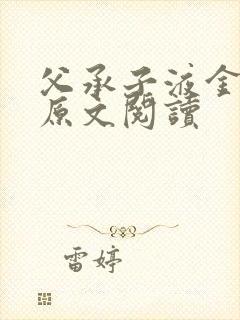 父承子液金
原文閱讀
雷婷